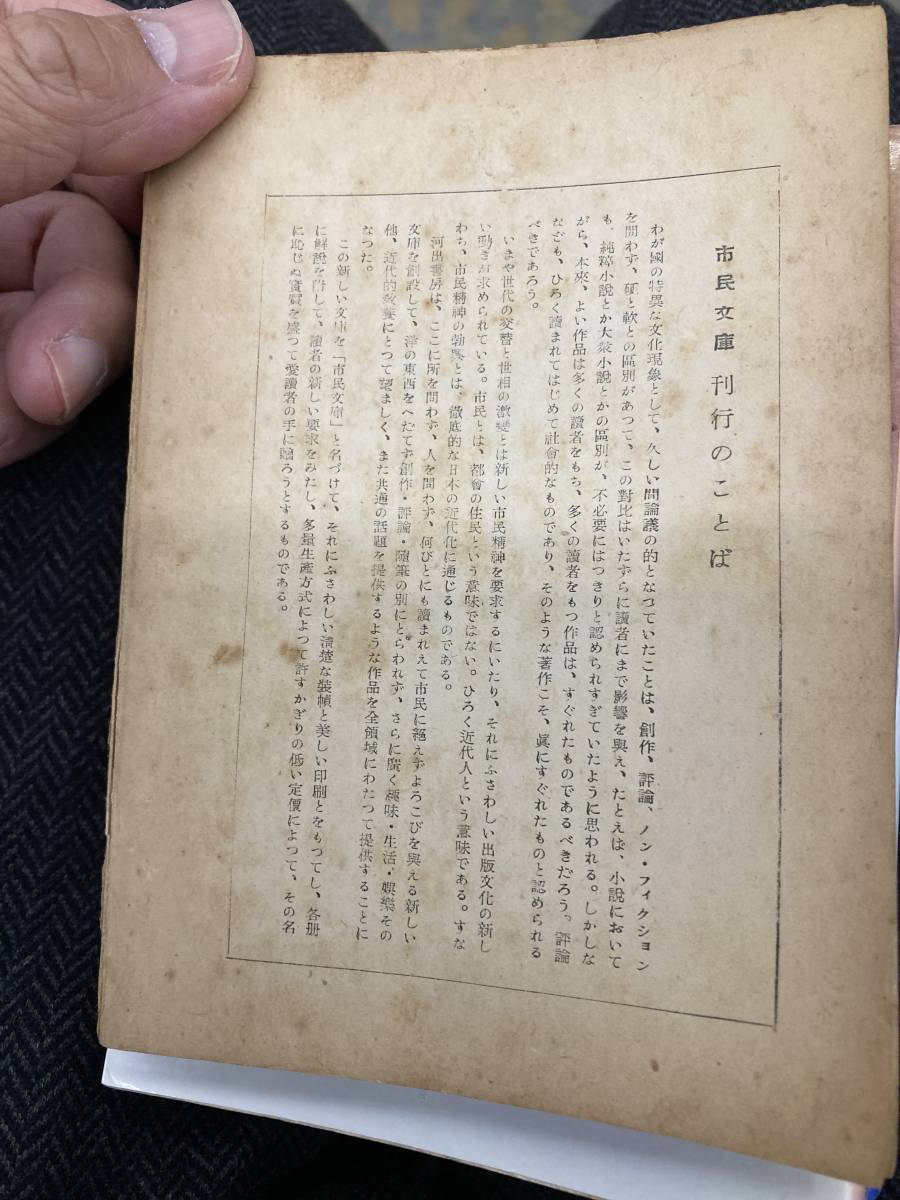 市民文庫 刊行のことば
わが國の特異な文化現象として、久しい間論議の的となつていたことは、創作、評論、ノン・フィクション
を問わず、硬と軟との區別があつて、この對比はいたずらに讀者にまで影響を與え、たとえば、小說において
も、純粹小說とか大衆小說とかの區別が、不必要にはつきりと認められすぎていたように思われる。しかしな
がら、本來、よい作品は多くの讀者をもち、多くの讀者をもつ作品は、すぐれたものであるべきだろう。評論
なども、ひろく讀まれてはじめて社會的なものであり、そのような著作こそ、眞にすぐれたものと認められる
べきであろう。
いまや世代の交替と世相の激變とは新しい市民精神を要求するにいたり、それにふさわしい出版文化の新し
い動きが求められている。市民とは、都會の住民という意味ではない。ひろく近代人という意味である。すな
わち、市民精神の勃興とは、徹底的な日本の近代化に通じるものである。
河出書房は、ここに所を問わず、人を問わず、何びとにも讀まれえて市民に絕えずよろこびを與える新しい
文庫を創設して、洋の東西をへだてず創作・評論・隨筆の別にとらわれず、さらに廣く趣味・生活・娛樂その
他、近代的敎養にとつて望ましく、また共通の話題を提供するような作品を全領域にわたつて提供することに
なつた。
この新しい文庫を「市民文庫」と名づけて、それにふさわしい淸楚な裝幀と美しい印刷とをもつてし、各册
に解說を附して、讀者の新しい要求をみたし、多量生產方式によつて許すかぎりの低い定價によつて、その名
に恥じぬ實質を盛つて愛讀者の手に贈ろうとするものである。